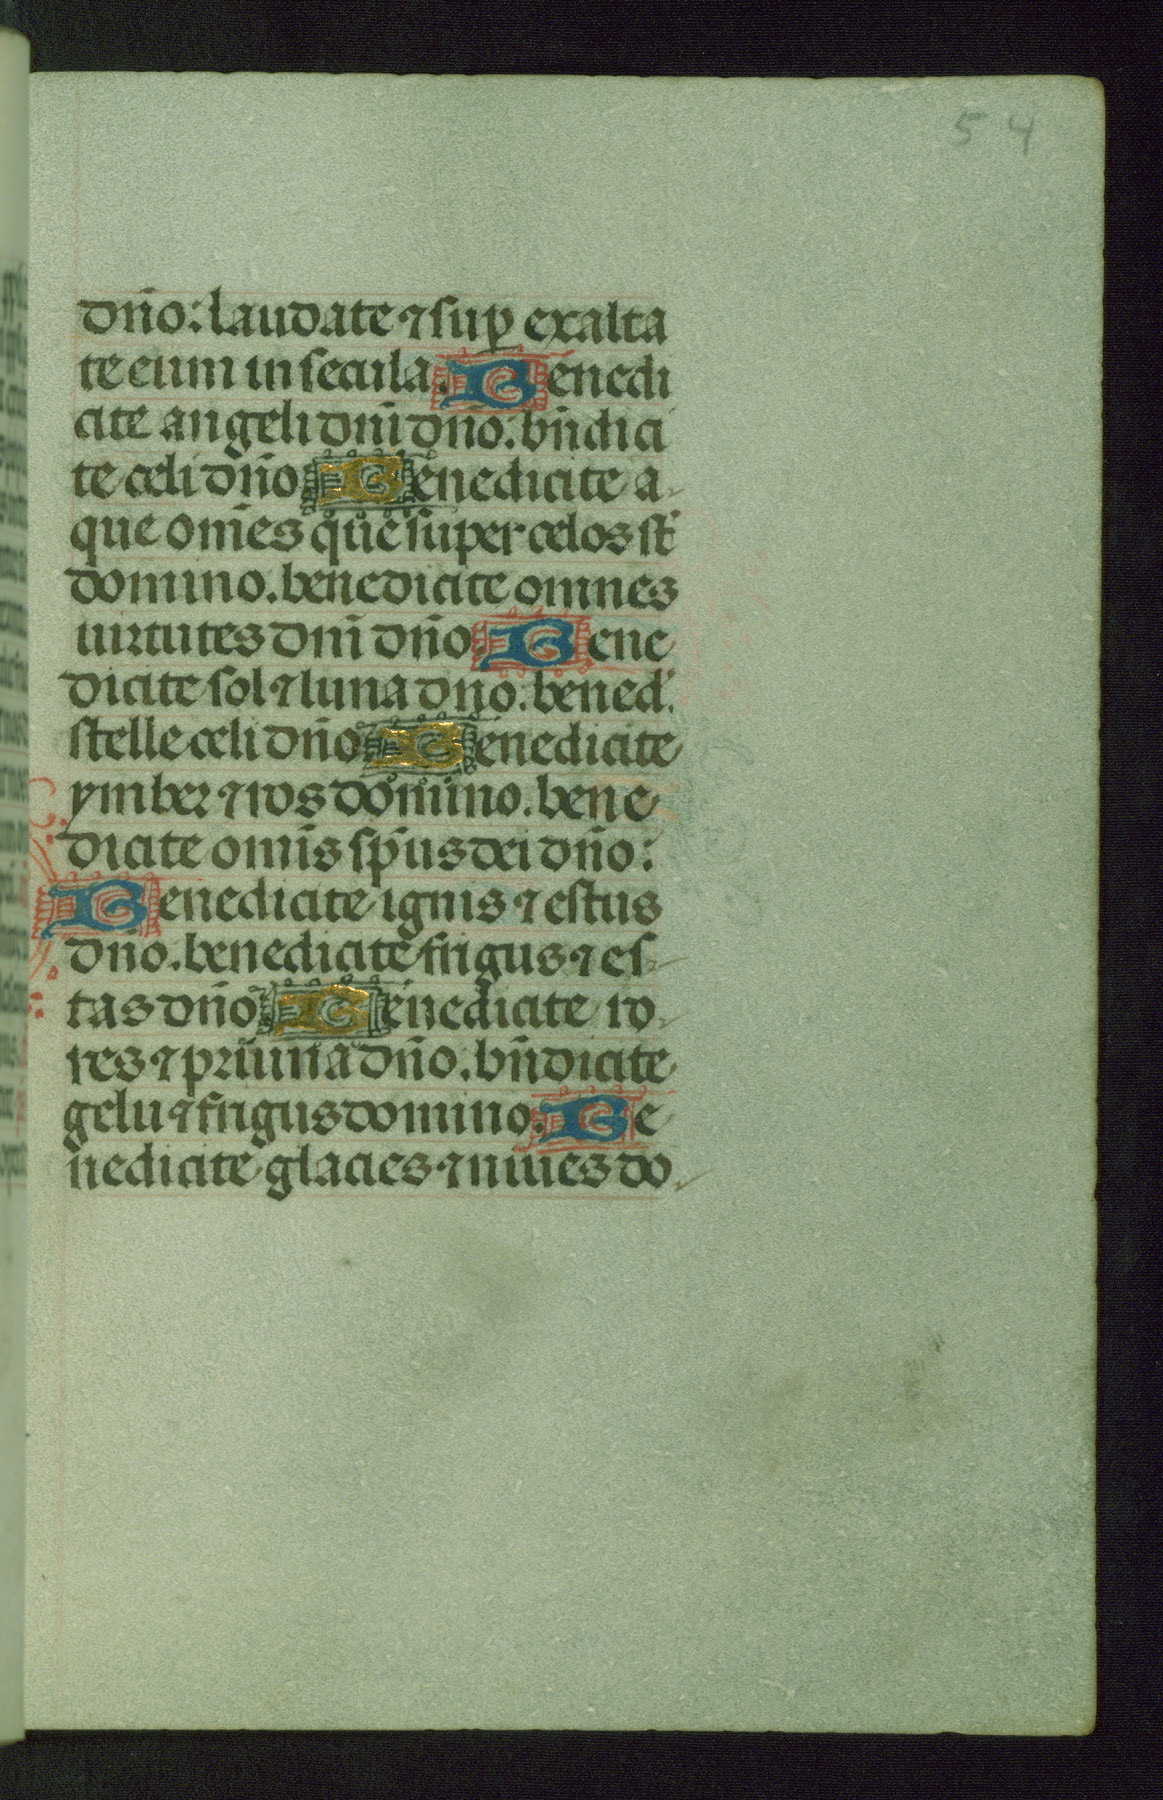 54
dn̄o: laudate ⁊ sup̱ exalta
te eum in secula. Benedi
cite angeli dnī dn̄o. bn̄dici
te celi dn̄o Benedicite a
que om̄es que super celos st̄
domino. benedicite omnes
uirtutes dnī dn̄o. Bene
dicite sol ⁊ luna dn̄o. bened̄.
stelle celi dn̄o Benedicite
ymber ⁊ ros domino. bene
dicite omīs sp̄us dei dn̄o:
Benedicite ignis ⁊ estus
dn̄o. benedicite frigus ⁊ es
tas dn̄o Benedicite ro
res ⁊ pruina dn̄o. bn̄dicite
gelu ⁊ frigus domino. Be
nedicite glacies ⁊ niues do